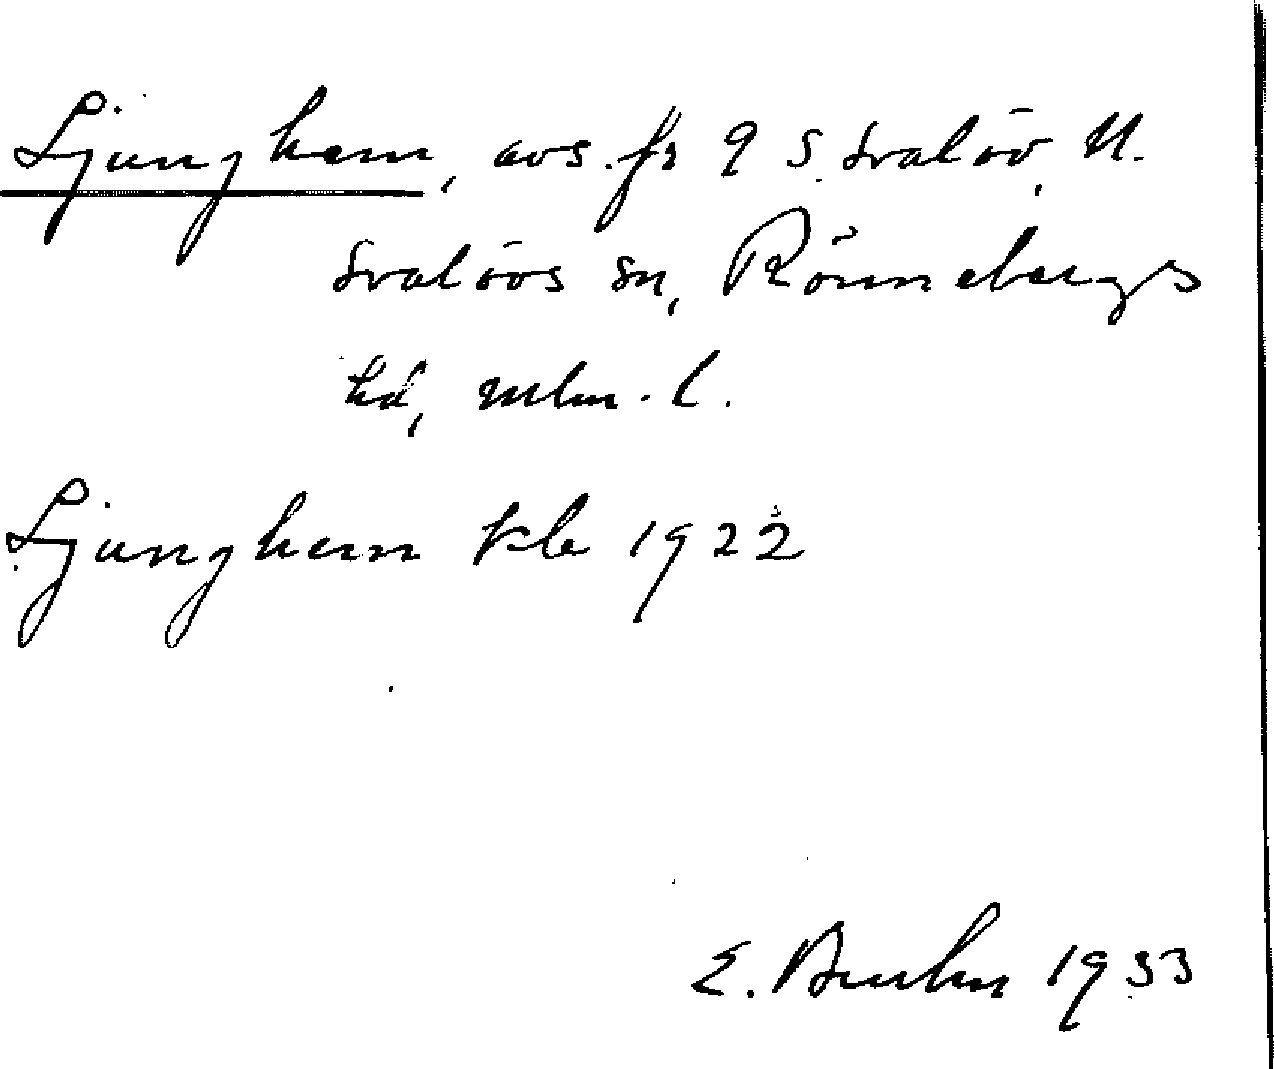 Ljunghem, avs. fr 9 S. Svalöv, N.
Svalövs sn, Rönnebergs
hd, Mlm. l.
Ljunghem Pb 1922
E. 1933